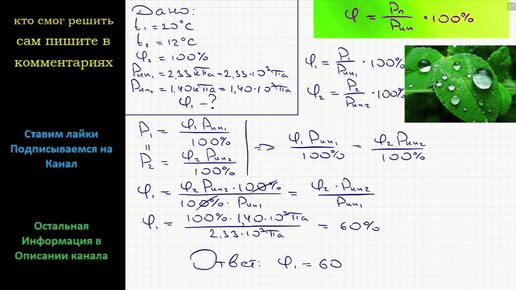 кто смог решить
сам пишите в
комментариях
Ставим лайки
Подписываемся на
Канал
Остальная
Информация в
Описании канала
Дано:
t₁ = 20°C
t₂ = 12°C
φ₂ = 100%
Pнп₁ = 2,33 кПа = 2,33·10³Па
Pнп₁ = 1,40 кПа = 1,40·10³Па
φ₁ - ?
φ = Pп/Pнп · 100%
φ₁ = P₁/Pнп₁ · 100%
φ₂ = P₂/Pнп₂ · 100%
P₁ = φ₁Pнп₁/100%
||
P₂ = φ₂Pнп₂/100%
=> φ₁Pнп₁/100% = φ₂Pнп₂/100%
φ₁ = φ₂Pнп₂·100%/100%·Pнп₁ = φ₂·Pнп₂/Pнп₁
φ₁ = 100%·1,40·10³Па/2,33·10³Па = 60%
Ответ: φ₁ = 60